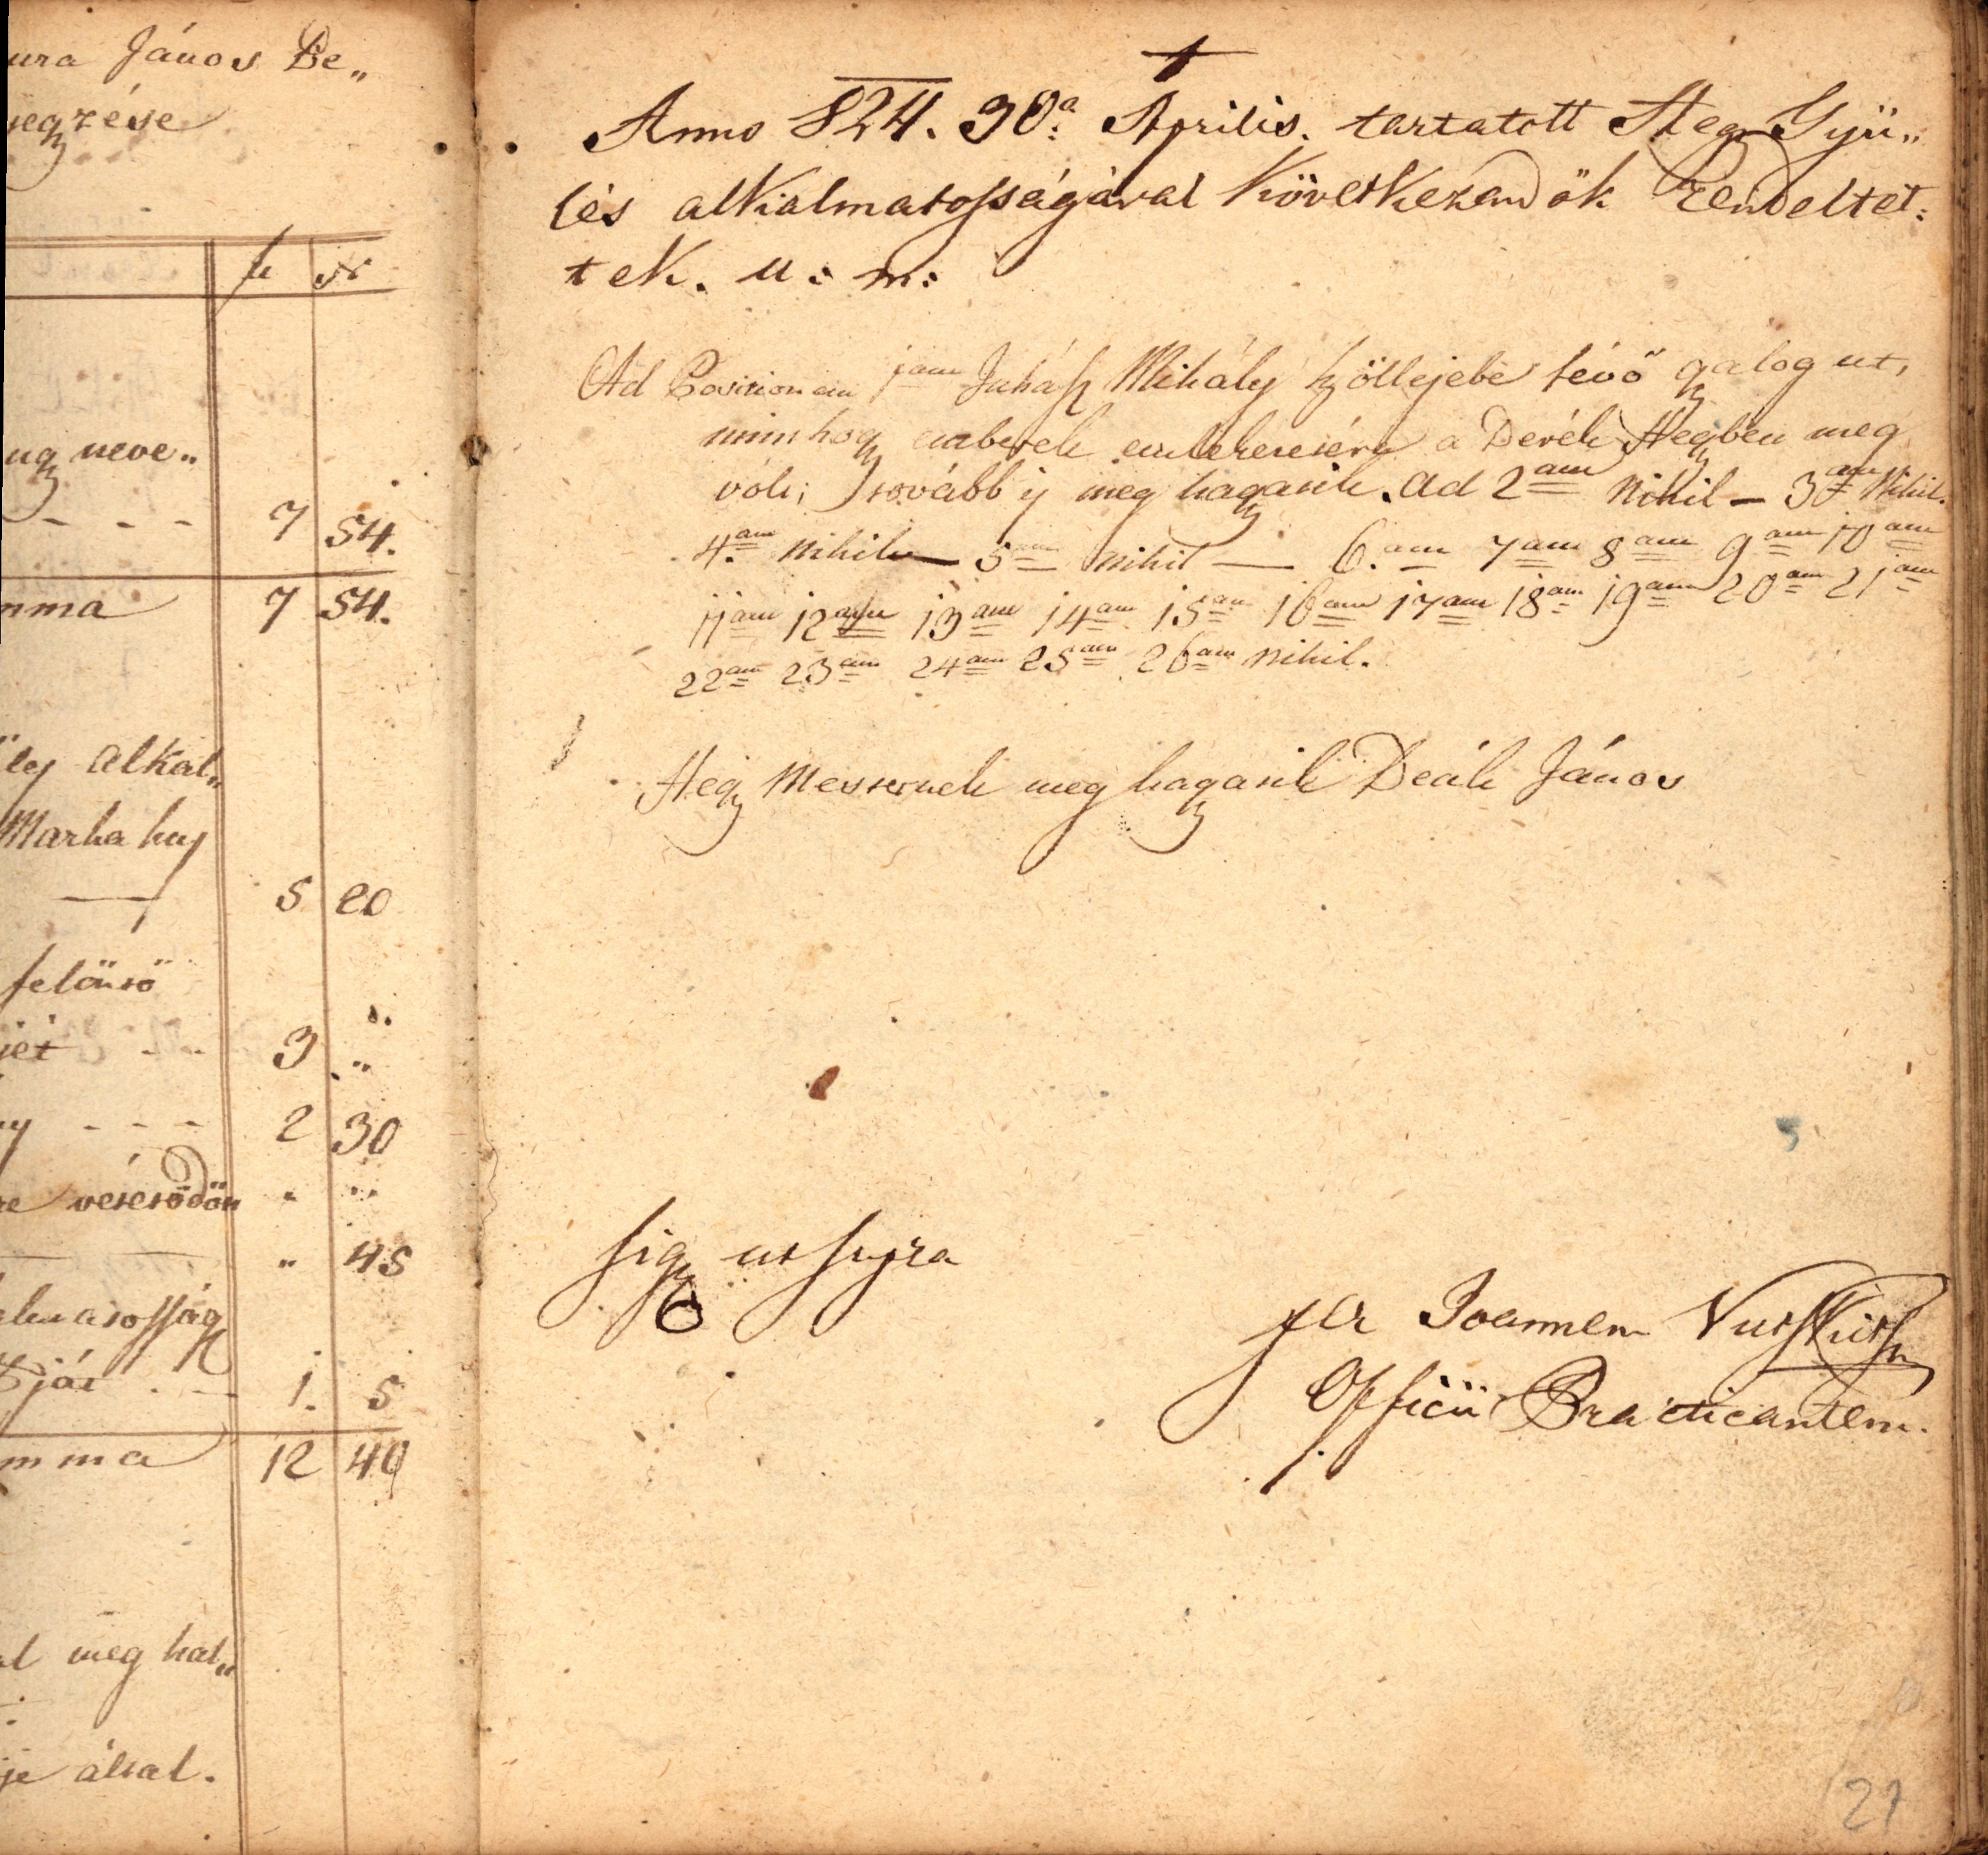 ura János Be„
jegzése
f xr
ug neve„
- - - 7 54.
mma 7 54.
ley alkal„
Marha huj
5 20
felönső
jét - - 3 „
y - - - 2 30
re „ „
„ 45
almatosság
1. 5
mma 12 40
al meg hal„
je által.
Anno 824. 30a: Aprilis. tartatott Hegy Gyü„
lés alkalmatosságával Következendök Rendeltet:
tek. u: m:
Ad Positionem 1am Juhász Mihály Szöllejebe lévő gyalog ut,
minthogy emberek emlekezetére a Derék Hegyben meg
vólt; tovább is meg hagyatik. Ad 2am Nihil — 3am Nihil.
4am Nihil — 5am Nihil — 6.am 7am 8am 9am 10am
11am 12am 13am 14am 15am 16am 17am 18am 19am 20am 21am
22am 23am 24am 25am 26am Nihil.
Hegy Mesternek meg hagyatik Deák János
Sig ut supra
per Joannem
Officii Practicantem.
21